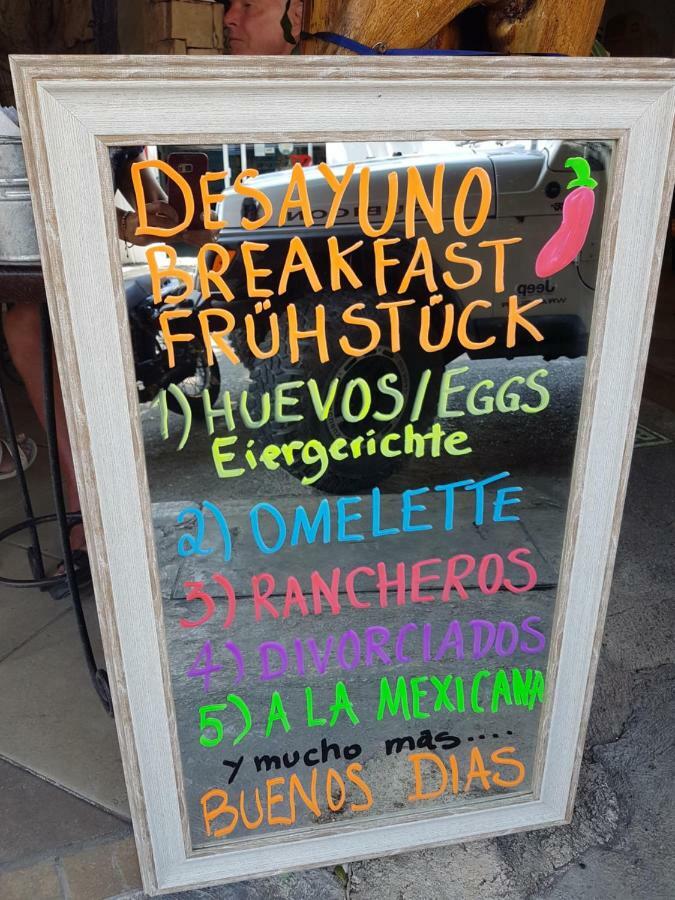 DESAYUNO
BREAKFAST
FRÜHSTÜCK
1) HUEVOS/EGGS
Eiergerichte
2) OMELETTE
3) RANCHEROS
4) DIVORCIADOS
5) A LA MEXICANA
y mucho más....
BUENOS DIAS
RUBICON
Jeep